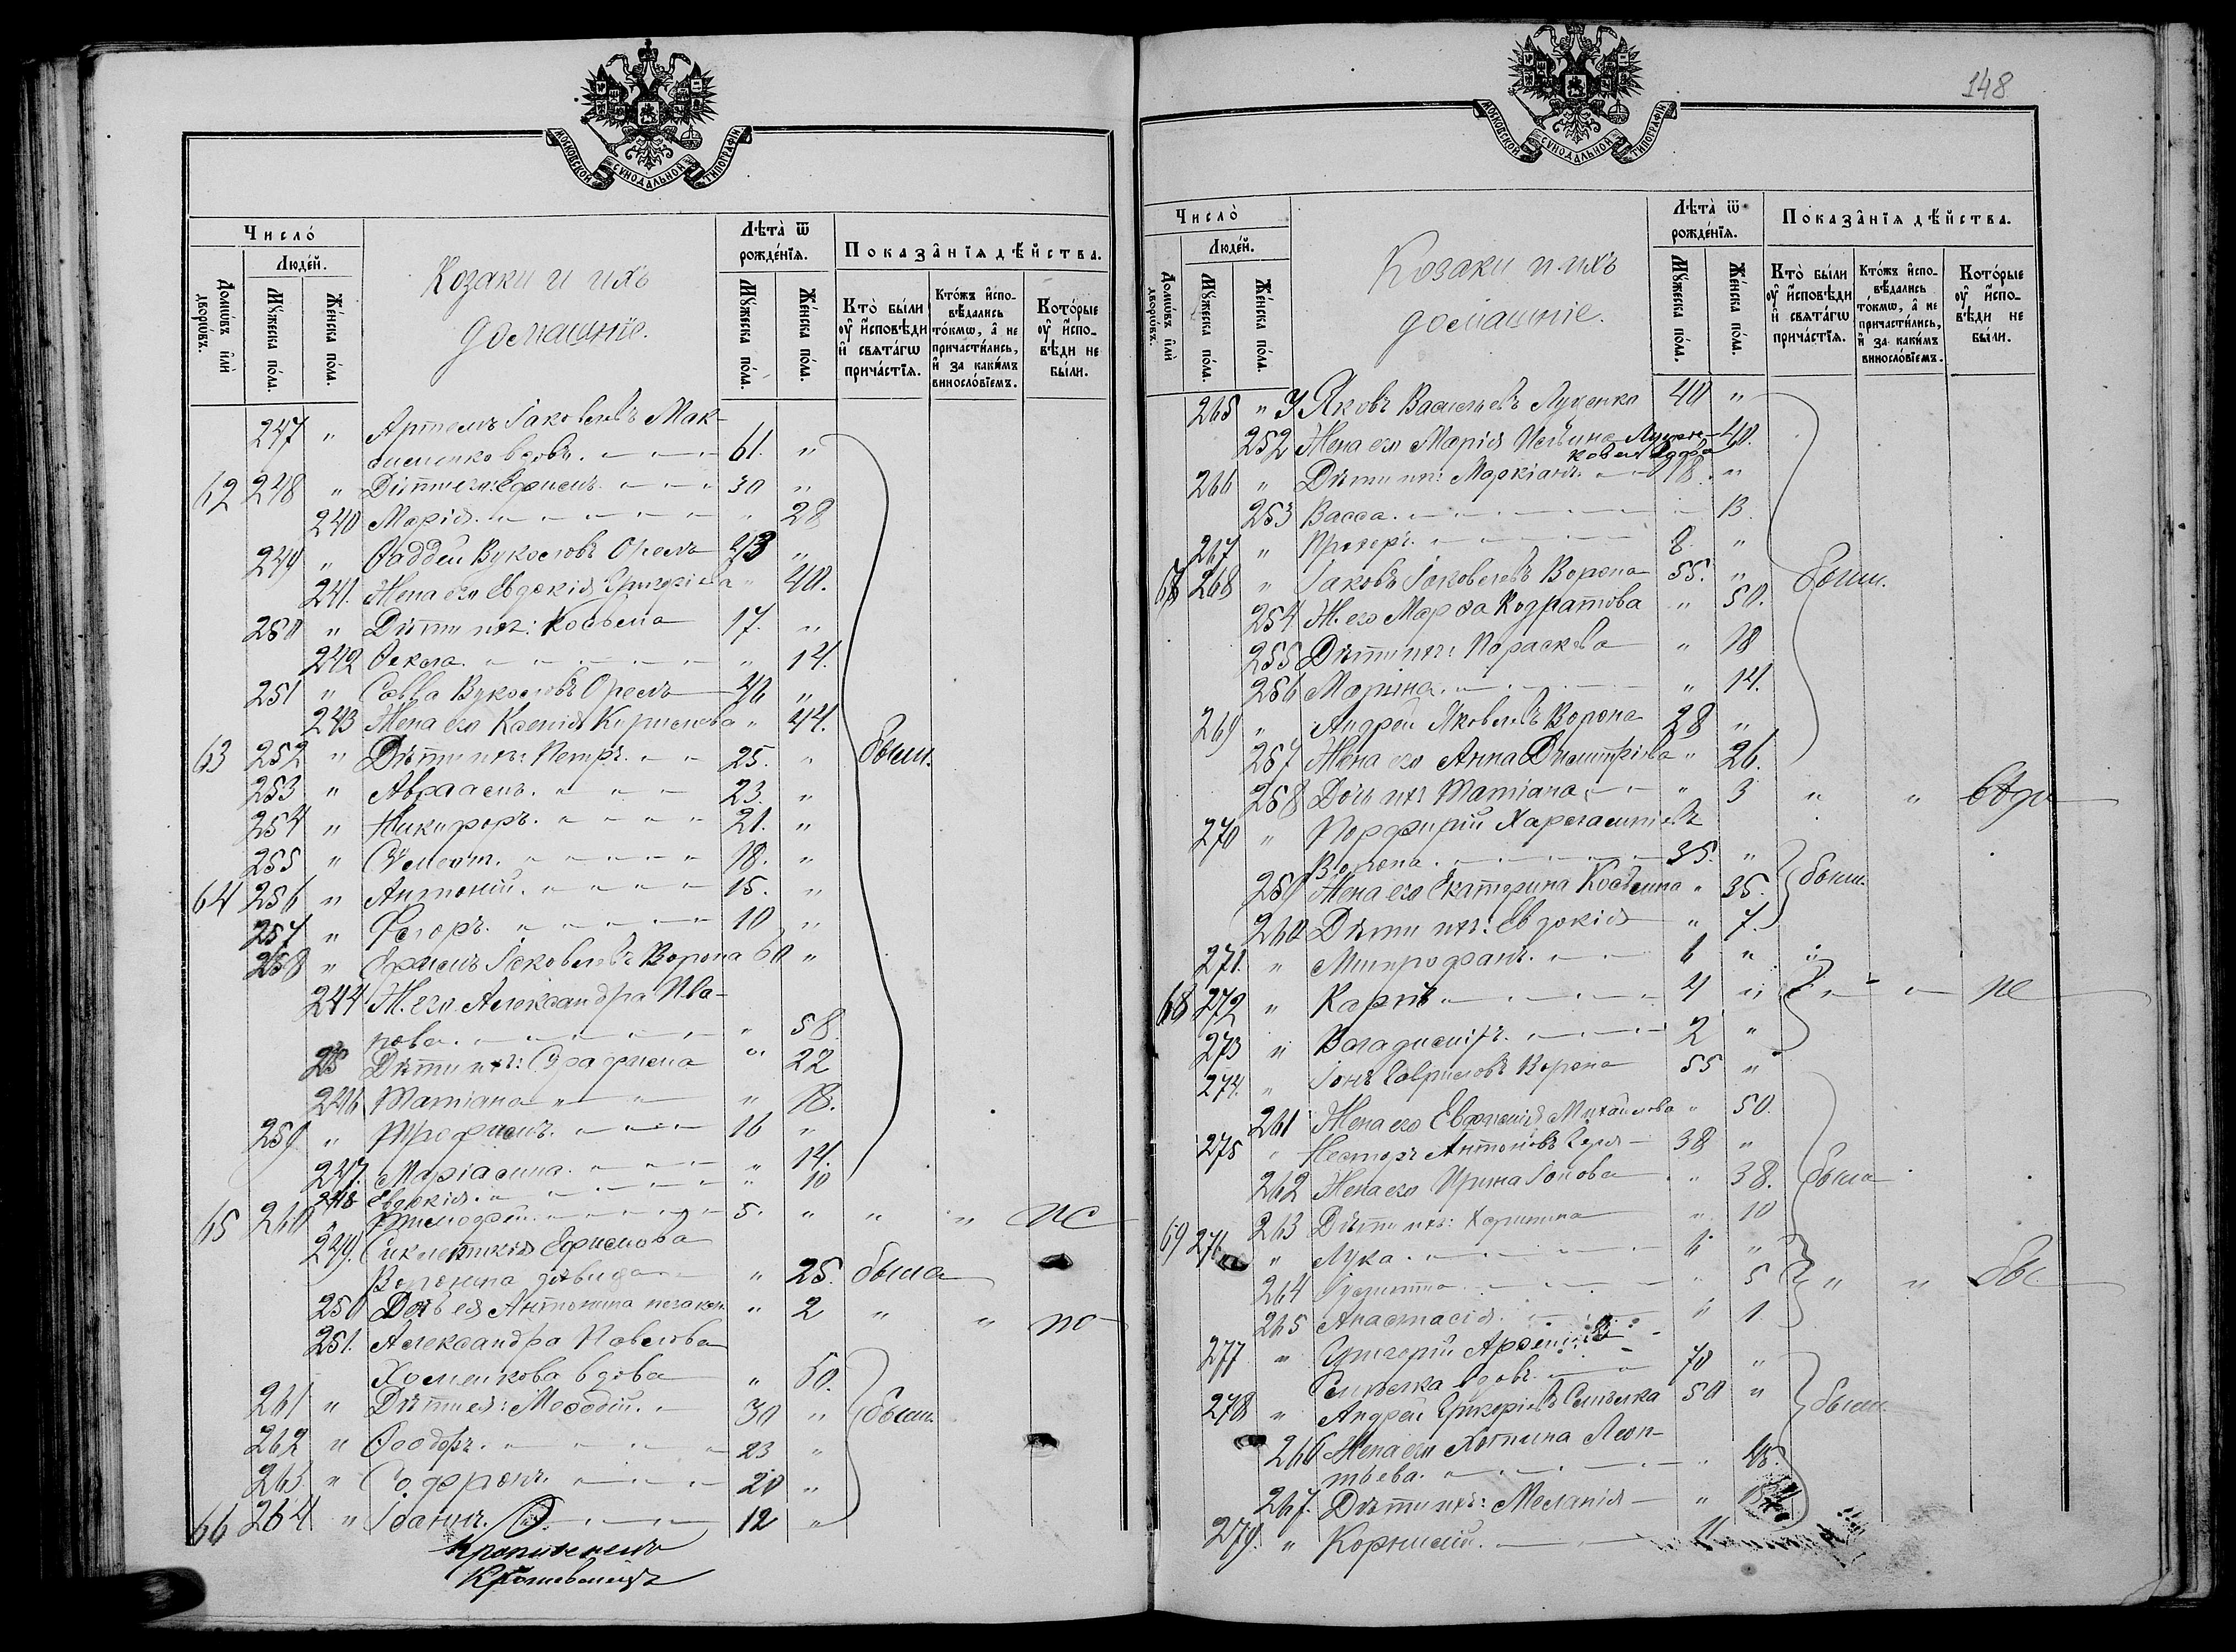 МОСКОВСКОЙ СѴНОДАЛЬНОЙ ТИПОГРАФІИ
Число̀
Людей.
Домѡвъ и҆лѝ дворѡвъ.
Мꙋжеска пола.
Женска пола.
Козаки и ихъ
домашніе.
Лѣта̀ ѿ рождеꙋнїѧ.
Мꙋжеска пола.
Женска пола.
Показанїѧ дѣйства.
Кто̀ были ᲂу҆ и҆сповѣди и҆ свѧтагѡ причастїѧ.
Ктожъ и҆сповѣдались токмѡ, а҆ не причастились, и҆ за какимъ винословїемъ.
Которые ᲂу҆ и҆сповѣди не были.
247 " Артемъ Іаковлевъ Мак-
сименко вдовъ. 61. "
62 248 " Дѣти его: Ефимъ. 30 "
240 Марія. " 28
249 " Фаддей Вуколовъ Орелъ 43 "
241. Жена его Евдокія Григоріева " 40.
250 " Дѣти ихъ: Косьма 17. "
242 Ѳекла. " 14.
251 " Савва Вуколовъ Орелъ 46 "
243 Жена его Ксенія Кирилова " 44.
63 252 " Дѣти ихъ: Петръ. 25. " были.
253 " Авраамъ. 23. "
254 " Никифоръ. 21. "
255 " Сѵмеонъ. 18. "
64 256 " Антоній. 15. "
257 " Егоръ. 10 "
258 " Ефимъ Іаковлевъ Ворона 60 "
244 Ж. его Александра Ива-
нова. " 58.
245 Дѣти ихъ: Серафима " 22
246 Татіана " 18.
259 " Трофимъ. 16 "
247. Маріамна. " 14.
248 Евдокія. " 10
65 260 Тимофей. 5. " " " не
249. Синклитикія Ефимова
Воронина " 25. была
250 Дочь ея Антонина незакон. " 2 " " не
251. Александра Павлова
Хоменкова вдова " 50.
261 " Дѣти ея: Меѳодій. 30 " были.
262 " Ѳеодоръ. 23 "
263 " Софронъ. 20 "
66 264 " Іоаннъ. 12 "
148
МОСКОВСКОЙ СѴНОДАЛЬНОЙ ТИПОГРАФІИ
Число̀
Людей.
Домѡвъ и҆лѝ дворѡвъ.
Мꙋжеска пола.
Женска пола.
Козаки и ихъ
домашніе.
Лѣта̀ ѿ рожденїѧ.
Мꙋжеска пола.
Женска пола.
Показанїѧ дѣйства.
Кто̀ были ᲂу҆ и҆сповѣди и҆ свѧтагѡ причастїѧ.
Ктожъ и҆сповѣдались токмѡ, а҆ не причастились, и҆ за какимъ винословїемъ.
Которые ᲂу҆ и҆сповѣди не были.
265 " Яковъ Васильевъ Луценко 40 "
252 Жена его Марія 40.
266 " Дѣти ихъ: Маркіанъ. 18. "
253 Васса. 13.
267 " Прохоръ. 8. "
67 268 " Іаковъ Іаковлевъ Ворона 55. " были.
254. Ж. его Марѳа Кодратова " 50.
255 Дѣти ихъ: Параскева " 18
256 Марина. " 14.
269 " Андрей Яковлевъ Ворона 28 "
257 Жена его Анна Димитріева " 26.
258 Дочь ихъ Татіана. " 3 " "
270 " Порфирій Харлампіевъ
Ворона. 35. "
259 Жена его Екатерина Косьмина " 35. были.
260 Дѣти ихъ: Евдокія " 7.
271. " Митрофанъ. 6 " "
68 272 " Карпъ 4 " не
273 " Владиміръ. 2 "
274. " Іона Гавриловъ Ворона 55 "
261 Жена его Евфимія Михайлова " 50.
275 " Несторъ Антоновъ 38 "
262 Жена его Ирина Іонова " 38. были
263 Дѣти ихъ: Харитина " 10
69 276 " Лука. 6 "
264 " 5 " "
265 Анастасія. " 1
277 " Григорій Арсеніевъ
вдовъ. 70 "
278 " Андрей Григоріевъ 50 " были
266 Жена его Хотина Леон-
тьева. " 48.
267. Дѣти ихъ: Меланія "
279. " Корнилій. 11